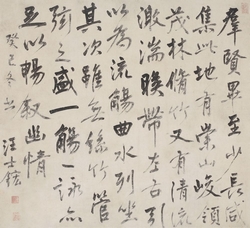 羣賢畢至少長咸
集此地有崇山峻領
茂林脩竹又有清流
激湍暎帶左右引
以為流觴曲水列坐
其次雖無絲竹管
弦之盛一觴一詠亦
足以暢敘幽情
癸巳冬日
汪士鋐